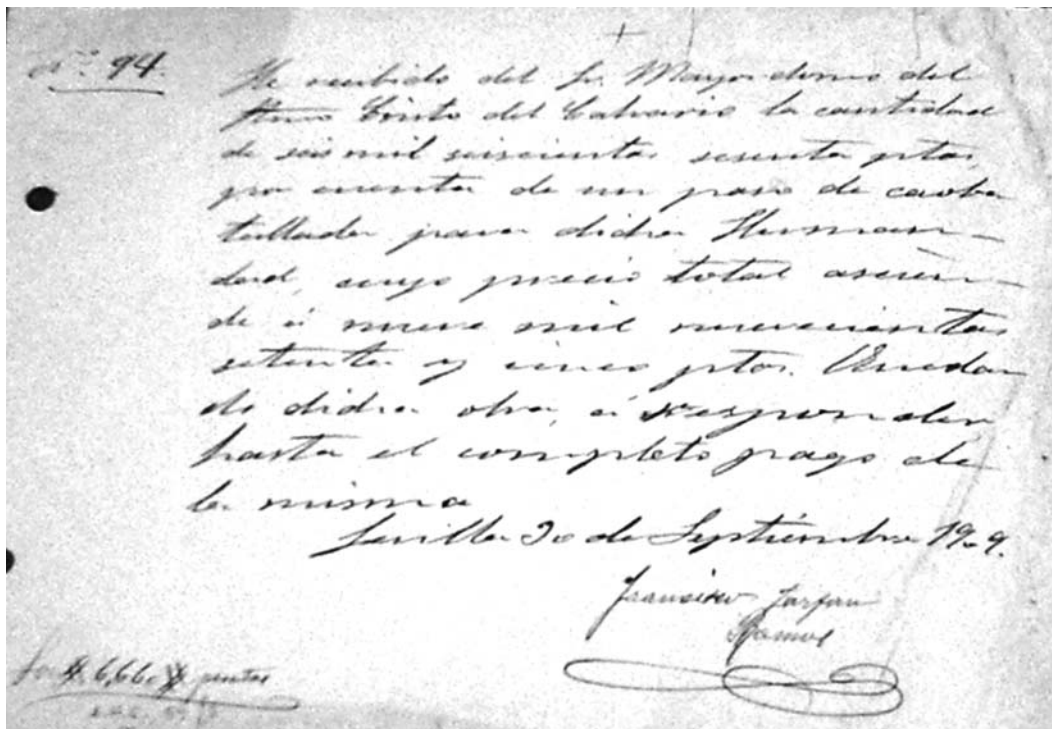 Nº. 94.
He recibido del Sr. Mayordomo del
Stmo Cristo del Calvario la cantidad
de seis mil seiscientas sesenta ptas
por cuenta de un paso de caoba
tallada para dicha Herman-
dad, cuyo precio total ascien-
de á nueve mil novecientas
setenta y cinco ptas. Quedan
do dicha obra á responder
hasta el completo pago de
la misma
Sevilla 30 de Septiembre 1909.
Francisco Farfan
Ramos
Son # 6,660 # pesetas